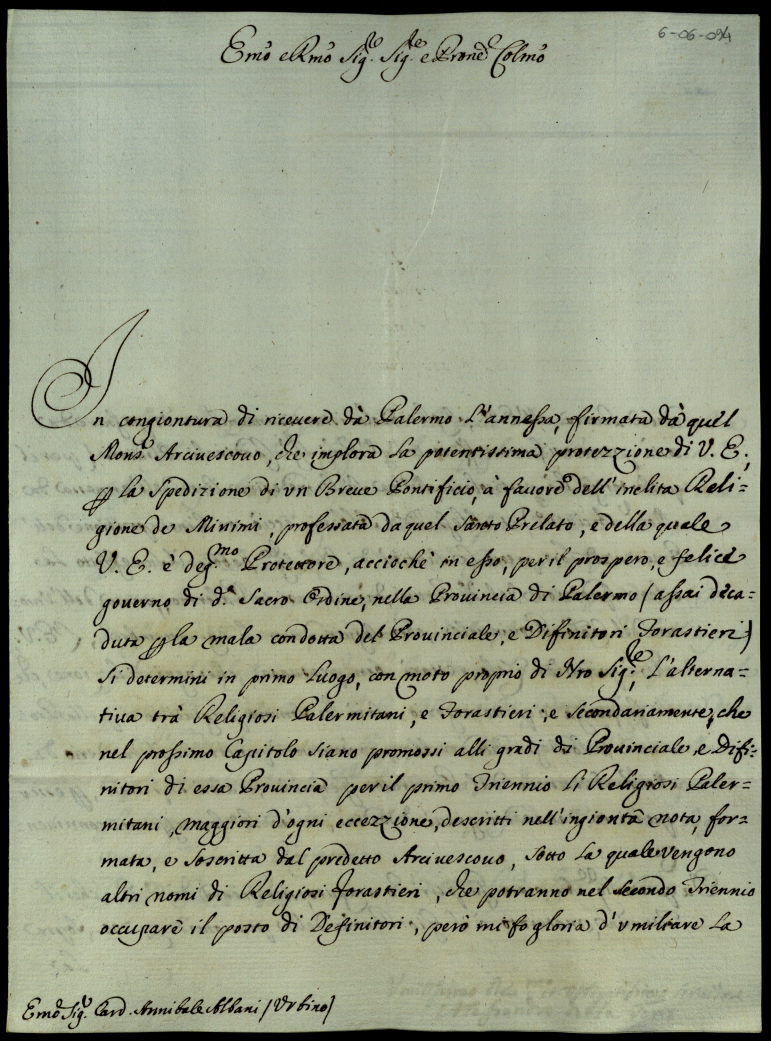 6-06-094
Emo e Rmo Sig.re Sig.re e Prone Colmo
In congiontura di riceuere dà Palermo L'annessa, firmata dà quel
Mons.r Arciuescouo, che implora La potentissima protezzione di V. E.,
p la Spedizione di vn Breue Pontificio, à fauore dell'inclita Reli=
gione de Minimi, professata da quel Santo Prelato, e della quale
V. E. è deg.mo Protettore, acciochè in esso, per il prospero, e felice
gouerno di d.o Sacro Ordine, nella Prouincia di Palermo (assai deca=
duta p la mala condotta del Prouinciale, e Difinitori Forastieri)
Si determini in primo Luogo, con moto proprio di Nro Sig.re, L'alterna=
tiua trà Religiosi Palermitani, e Forastieri, e Secondariamente, che
nel prossimo Capitolo siano promossi alli gradi di Prouinciale, e Difi=
nitori di essa Prouincia per il primo Triennio Li Religiosi Paler=
mitani, maggiori d'ogni eccezzione, descritti nell'ingionta nota, for=
mata, e Soscritta dal predetto Arciuescouo, Sotto La quale vengono
altri nomi di Religiosi forastieri, che potranno nel Secondo Triennio
occupare il posto di Definitori, però mi fo gloria d'vmiliare La
Emo Sig.r Card. Annibale Albani (Vrbino)